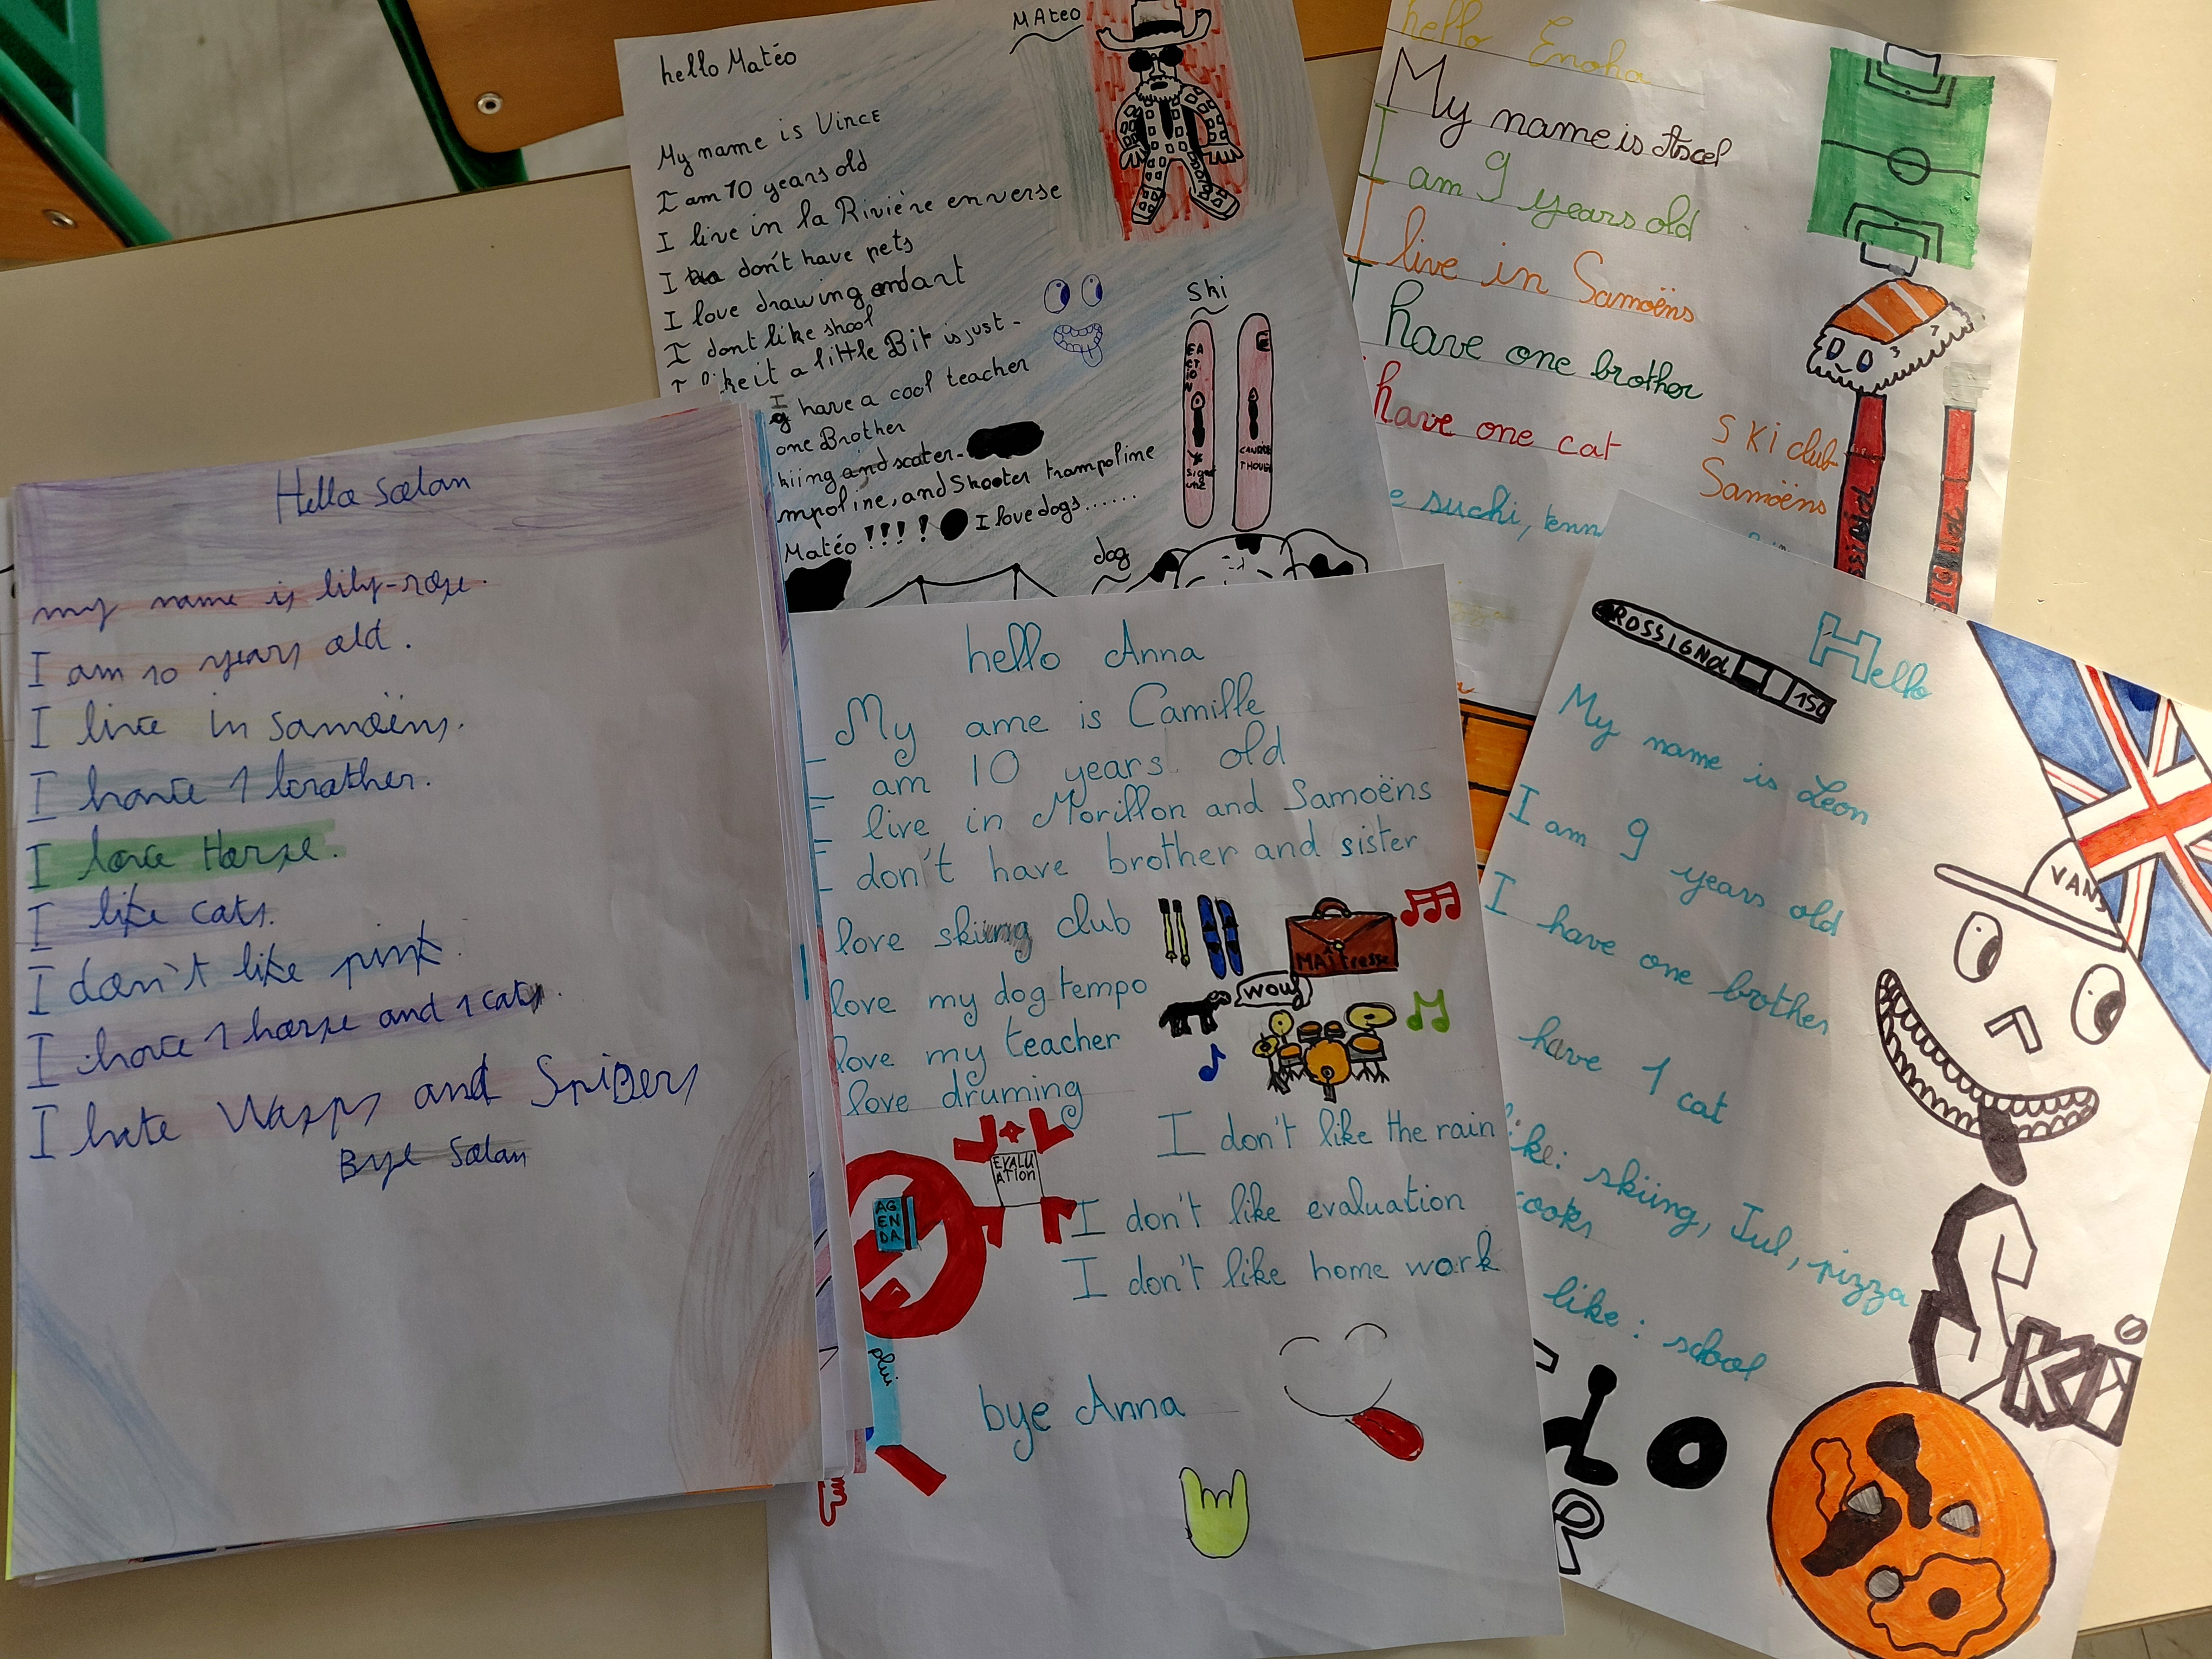 hello Matéo
MAteo
My name is Vince
I am 10 years old
I live in la Rivière enverse
I don't have pets
I love drawing and art
I dont like shool
like it a little Bit is just -
I have a cool teacher
one Brother
kiing and scater-
mpoline, and Skooter trampoline
Matéo !!!! I love dogs......
Ski
dog
hello Enoha
My name is Ascel
I am 9 years old
I live in Samoëns
have one brother
have one cat
e suchi, tenn
Ski club
Samoëns
Hello Solan
my name is lily-rose.
I am 10 years old.
I live in samoëns.
I have 1 brother.
I love Horse.
I like cats.
I don't like pink.
I have 1 horse and 1 cat.
I hate Wasps and SpiDers
Bye Solan
hello Anna
My ame is Camille
I am 10 years old
I live in Morillon and Samoëns
I don't have brother and sister
love skiing club
love my dog tempo
love my teacher
love druming
MAîtresse
wouf
I don't like the rain
EVALU
ATION
I don't like evaluation
AG
EN
DA
I don't like home work
plui
bye Anna
ROSSIGNOL 150
Hello
My name is Léon
I am 9 years old
I have one brother
have 1 cat
ike: skiing, Jul, pizza
cooks
like : school
VANS
Ski